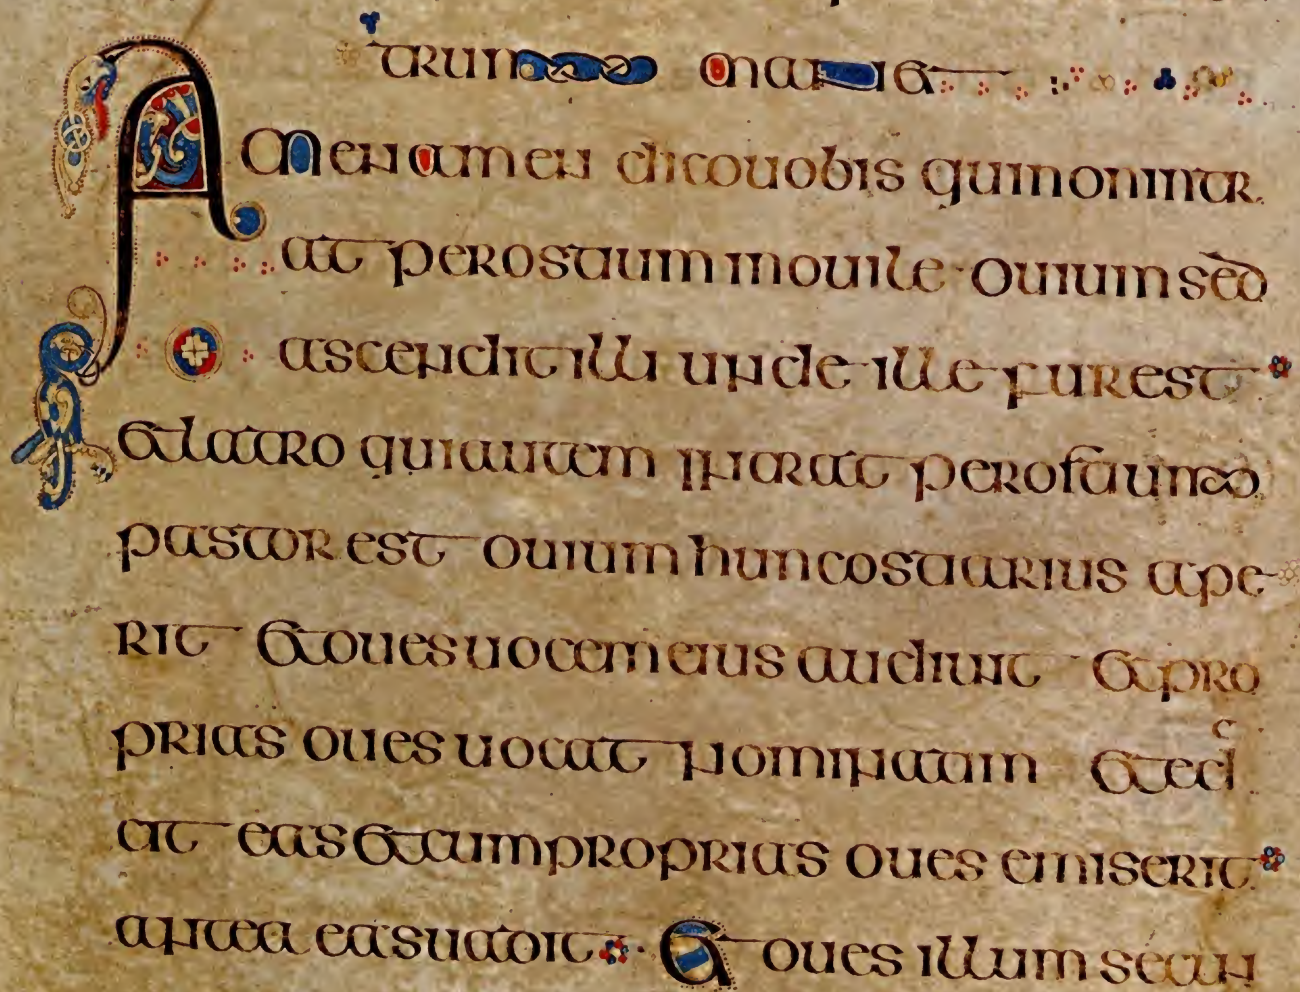 trum manet
Amen amen dico uobis qui non intr
at per ostium in ouile ouium sed
ascendit illi unde ille fur est
et latro qui autem intrat per ostium
pastor est ouium hunc ostiarius ape
rit et oues uocem eius audiunt et pro
prias oues uocat nominatim et ed
cit eas et cum proprias oues emiserit
antea eas uadit et oues illum secun